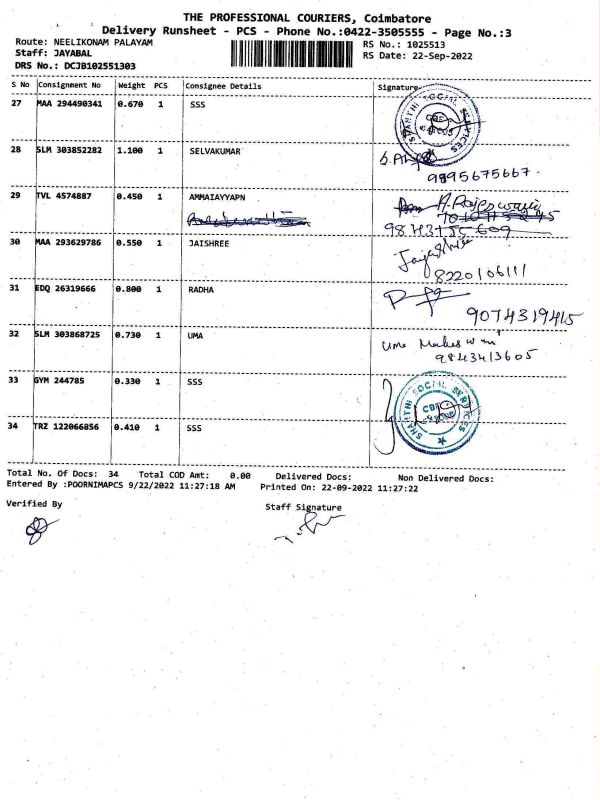 THE PROFESSIONAL COURIERS, Coimbatore
Delivery Runsheet - PCS - Phone No.:0422-3505555 - Page No.:3
Route: NEELIKONAM PALAYAM
Staff: JAYABAL
DRS No.: DCJB102551303
RS No.: 1025513
RS Date: 22-Sep-2022
S No Consignment No Weight PCS Consignee Details Signature
27 MAA 294490341 0.670 1 SSS
SHANTHI SOCIAL SERVICES
28 SLM 303852282 1.100 1 SELVAKUMAR
9895675667
29 TVL 4574887 0.450 1 AMMAIAYYAPN
A. Rajeswari
98431 55 609
30 MAA 293629786 0.550 1 JAISHREE
Jayashree
8220106111
31 EDQ 26319666 0.800 1 RADHA
9074319415
32 SLM 303868725 0.730 1 UMA
Uma Maheswari
9843413605
33 GYM 244785 0.330 1 SSS
SHANTHI SOCIAL SERVICES
34 TRZ 122066856 0.410 1 SSS
Total No. Of Docs: 34 Total COD Amt: 0.00 Delivered Docs: Non Delivered Docs:
Entered By :POORNIMAPCS 9/22/2022 11:27:18 AM Printed On: 22-09-2022 11:27:22
Verified By
Staff Signature